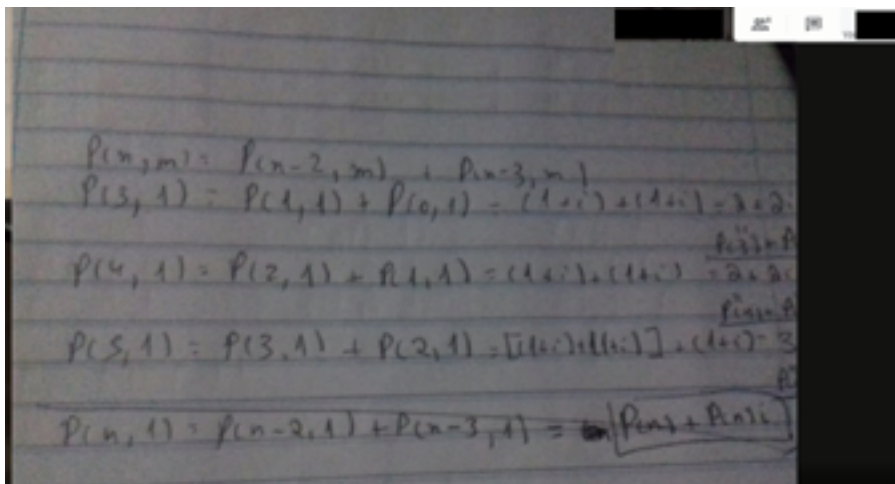 P(n,m) = P(n-2,m) + P(n-3,m)
P(3,1) = P(1,1) + P(0,1) = (1+i) + (1+i) = 2+2i
P(4,1) = P(2,1) + P(1,1) = (1+i) + (1+i) = 2+2i
P(5,1) = P(3,1) + P(2,1) = [(1+i)+(1+i)] + (1+i) = 3
P(n,1) = P(n-2,1) + P(n-3,1) = P(n) + P(n)i